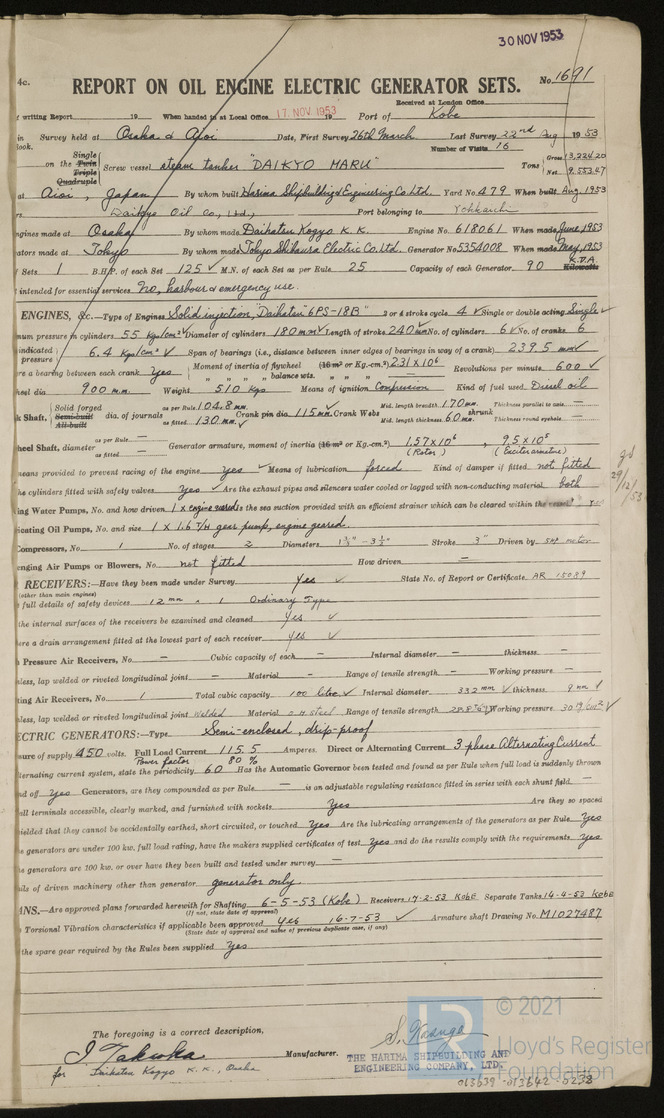 30 NOV 1953
4c. REPORT ON OIL ENGINE ELECTRIC GENERATOR SETS. No 1691
Received at London Office
f writing Report 19 When handed in at Local Office 17. NOV 1953 19 Port of Kobe
in Survey held at Osaka & Aioi Date, First Survey 26th March Last Survey 22nd Aug 1953
ook. Number of Visits 16
on the Single Twin Triple Quadruple Screw vessel steam tanker "DAIKYO MARU" Tons Gross 13,224.20 Net 9.553.27
at Aioi, Japan By whom built Harima Shipbuilding & Engineering Co Ltd. Yard No. 479 When built Aug. 1953
Daikyo Oil Co., Ltd., Port belonging to Yokkaichi
ngines made at Osaka By whom made Daihatsu Kogyo K.K. Engine No. 618061 When made June 1953
ators made at Tokyo By whom made Tokyo Shibaura Electric Co. Ltd. Generator No 5354008 When made May, 1953
Sets 1 B.H.P. of each Set 125 M.N. of each Set as per Rule 25 Capacity of each Generator 90 K.V.A. Kilowatts
intended for essential services No, harbour & emergency use.
ENGINES, &c.—Type of Engines Solid injection, "Daihatsu" 6PS-18B" 2 or 4 stroke cycle 4 Single or double acting Single
mum pressure in cylinders 55 Kgs/cm² Diameter of cylinders 180 mm Length of stroke 240 mm No. of cylinders 6 No. of cranks 6
indicated pressure 6.4 Kgs/cm² Span of bearings (i.e., distance between inner edges of bearings in way of a crank) 239.5 mm
re a bearing between each crank Yes Moment of inertia of flywheel (16 m² or Kg.-cm.²) 2.31 x 10⁶ Revolutions per minute 600
" " " balance wts. " " "
heel dia 900 m.m. Weight 510 Kgs Means of ignition Compression Kind of fuel used Diesel oil
k Shaft, Solid forged Semi-built All-built dia. of journals as per Rule 104.8 mm as fitted 130 mm Crank pin dia. 115 mm Crank Webs Mid. length breadth 170 mm Mid. length thickness 60 mm shrunk Thickness parallel to axis — Thickness round eyehole —
heel Shaft, diameter as per Rule — as fitted — Generator armature, moment of inertia (16 m² or Kg.-cm.²) 1.57 x 10⁶ (Rotor), 9.5 x 10⁵ (Exciter armature)
means provided to prevent racing of the engine yes Means of lubrication forced Kind of damper if fitted not fitted
he cylinders fitted with safety valves Yes Are the exhaust pipes and silencers water cooled or lagged with non-conducting material both
ing Water Pumps, No. and how driven 1 x engine geared Is the sea suction provided with an efficient strainer which can be cleared within the vessel? yes
icating Oil Pumps, No. and size 1 x 1.6 T/H gear pump, engine geared.
Compressors, No. 1 No. of stages 2 Diameters Stroke 3" Driven by motor
enging Air Pumps or Blowers, No. not fitted How driven —
RECEIVERS:—Have they been made under Survey Yes State No. of Report or Certificate AR 15089
(other than main engines)
full details of safety devices 12 mm x 1 Ordinary Type
the internal surfaces of the receivers be examined and cleaned Yes
ere a drain arrangement fitted at the lowest part of each receiver Yes
h Pressure Air Receivers, No. — Cubic capacity of each — Internal diameter — thickness —
nless, lap welded or riveted longitudinal joint — Material — Range of tensile strength — Working pressure —
ting Air Receivers, No. 1 Total cubic capacity 100 litre Internal diameter 332 mm thickness 9 mm
nless, lap welded or riveted longitudinal joint Welded Material O.H. Steel Range of tensile strength Working pressure 30 kg/cm²
ECTRIC GENERATORS:—Type Semi-enclosed, drip-proof
sure of supply 450 volts. Full Load Current 115.5 Amperes. Direct or Alternating Current 3 phase Alternating Current
Power factor 80 %
lternating current system, state the periodicity 60 Has the Automatic Governor been tested and found as per Rule when full load is suddenly thrown
nd off Yes Generators, are they compounded as per Rule — is an adjustable regulating resistance fitted in series with each shunt field —
all terminals accessible, clearly marked, and furnished with sockets Yes Are they so spaced
hielded that they cannot be accidentally earthed, short circuited, or touched Yes Are the lubricating arrangements of the generators as per Rule Yes
e generators are under 100 kw. full load rating, have the makers supplied certificates of test Yes and do the results comply with the requirements Yes
e generators are 100 kw. or over have they been built and tested under survey —
ils of driven machinery other than generator generator only.
ANS.—Are approved plans forwarded herewith for Shafting 6-5-53 (Kobe) Receivers 17-2-53 KOBE Separate Tanks 14-4-53 KOBE
(If not, state date of approval)
Torsional Vibration characteristics if applicable been approved Yes 16-7-53 Armature shaft Drawing No. M1027487
(State date of approval and name of previous duplicate case, if any)
the spare gear required by the Rules been supplied Yes
29/12/53
The foregoing is a correct description,
Manufacturer.
for Daihatsu Kogyo K.K., Osaka
THE HARIMA SHIPBUILDING AND
ENGINEERING COMPANY, LTD.
© 2021
Lloyd's Register
Foundation
013639-013642-0238